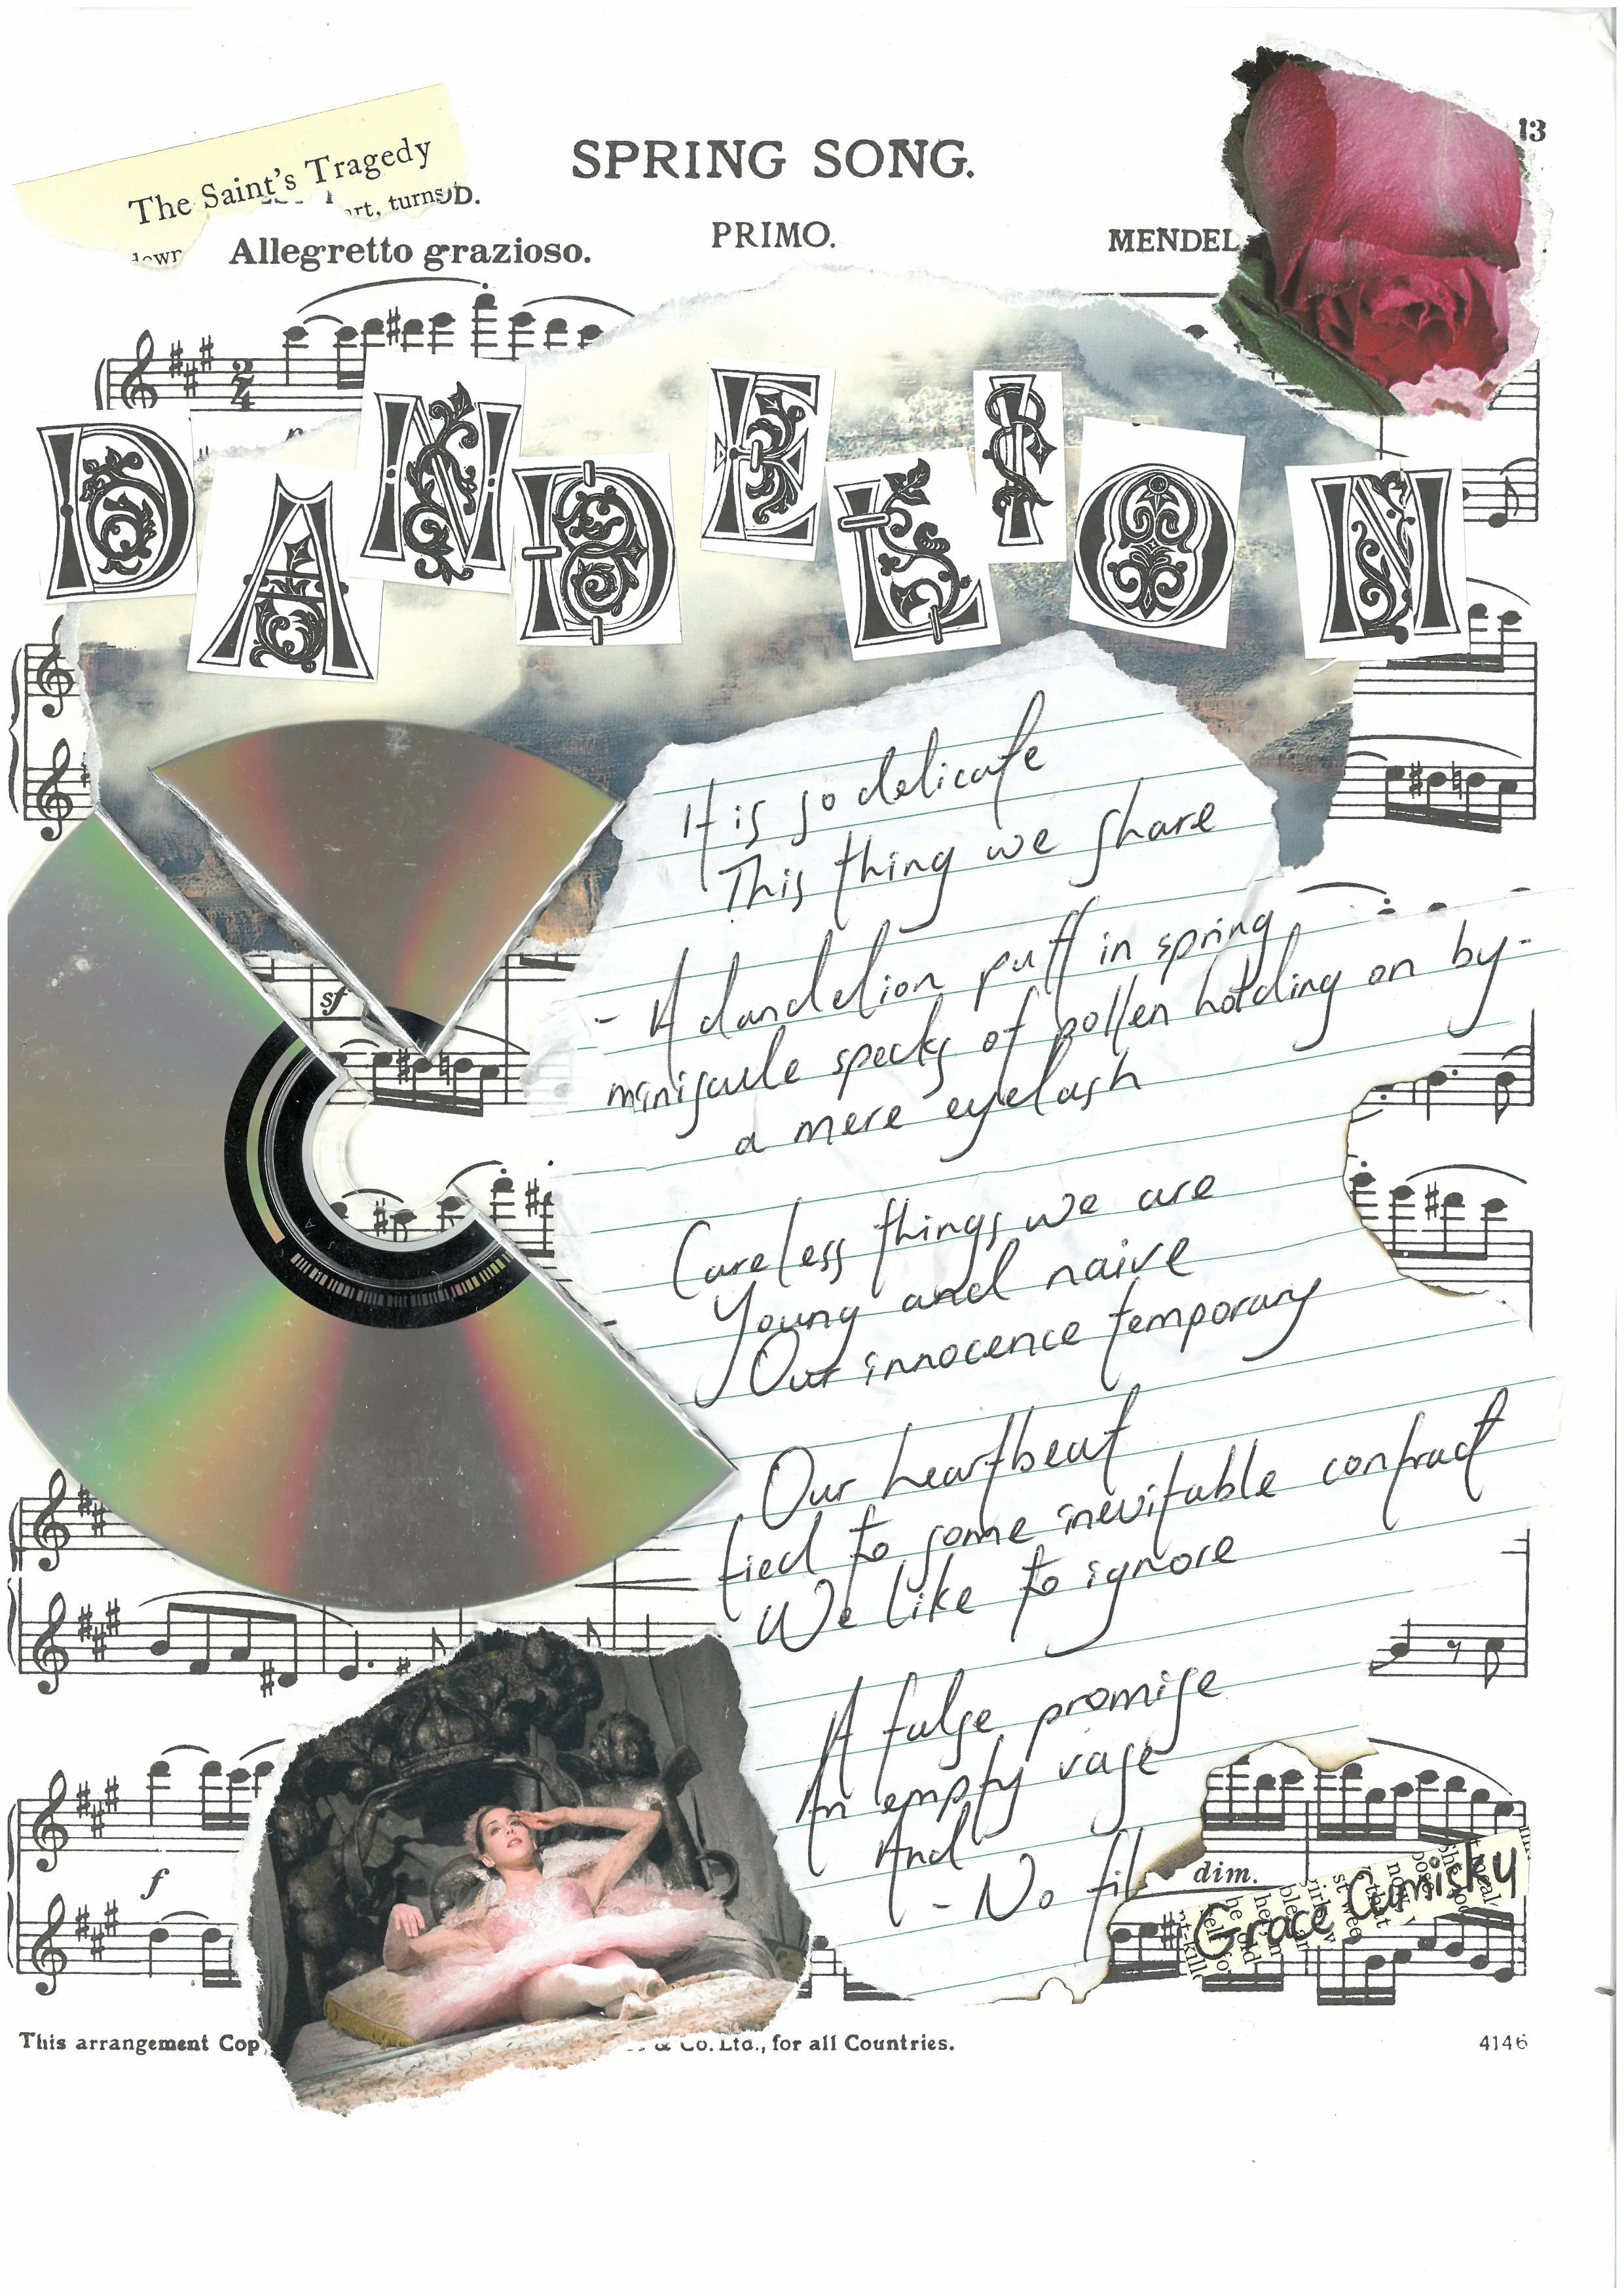 13
SPRING SONG.
The Saint's Tragedy
art, turns D.
down
PRIMO.
Allegretto grazioso.
MENDEL
DANDELION
It is so delicate
This thing we share
- A dandelion puff in spring
miniscule specks of pollen holding on by-
a mere eyelash
sf
Careless things we are
Young and naive
Our innocence temporary
Our heartbeat
tied to some inevitable contract
We like to ignore
A false promise
An empty vase
And
- No fil
f
dim.
Grace Cumisky
This arrangement Cop
& Co. Ltd., for all Countries.
4146